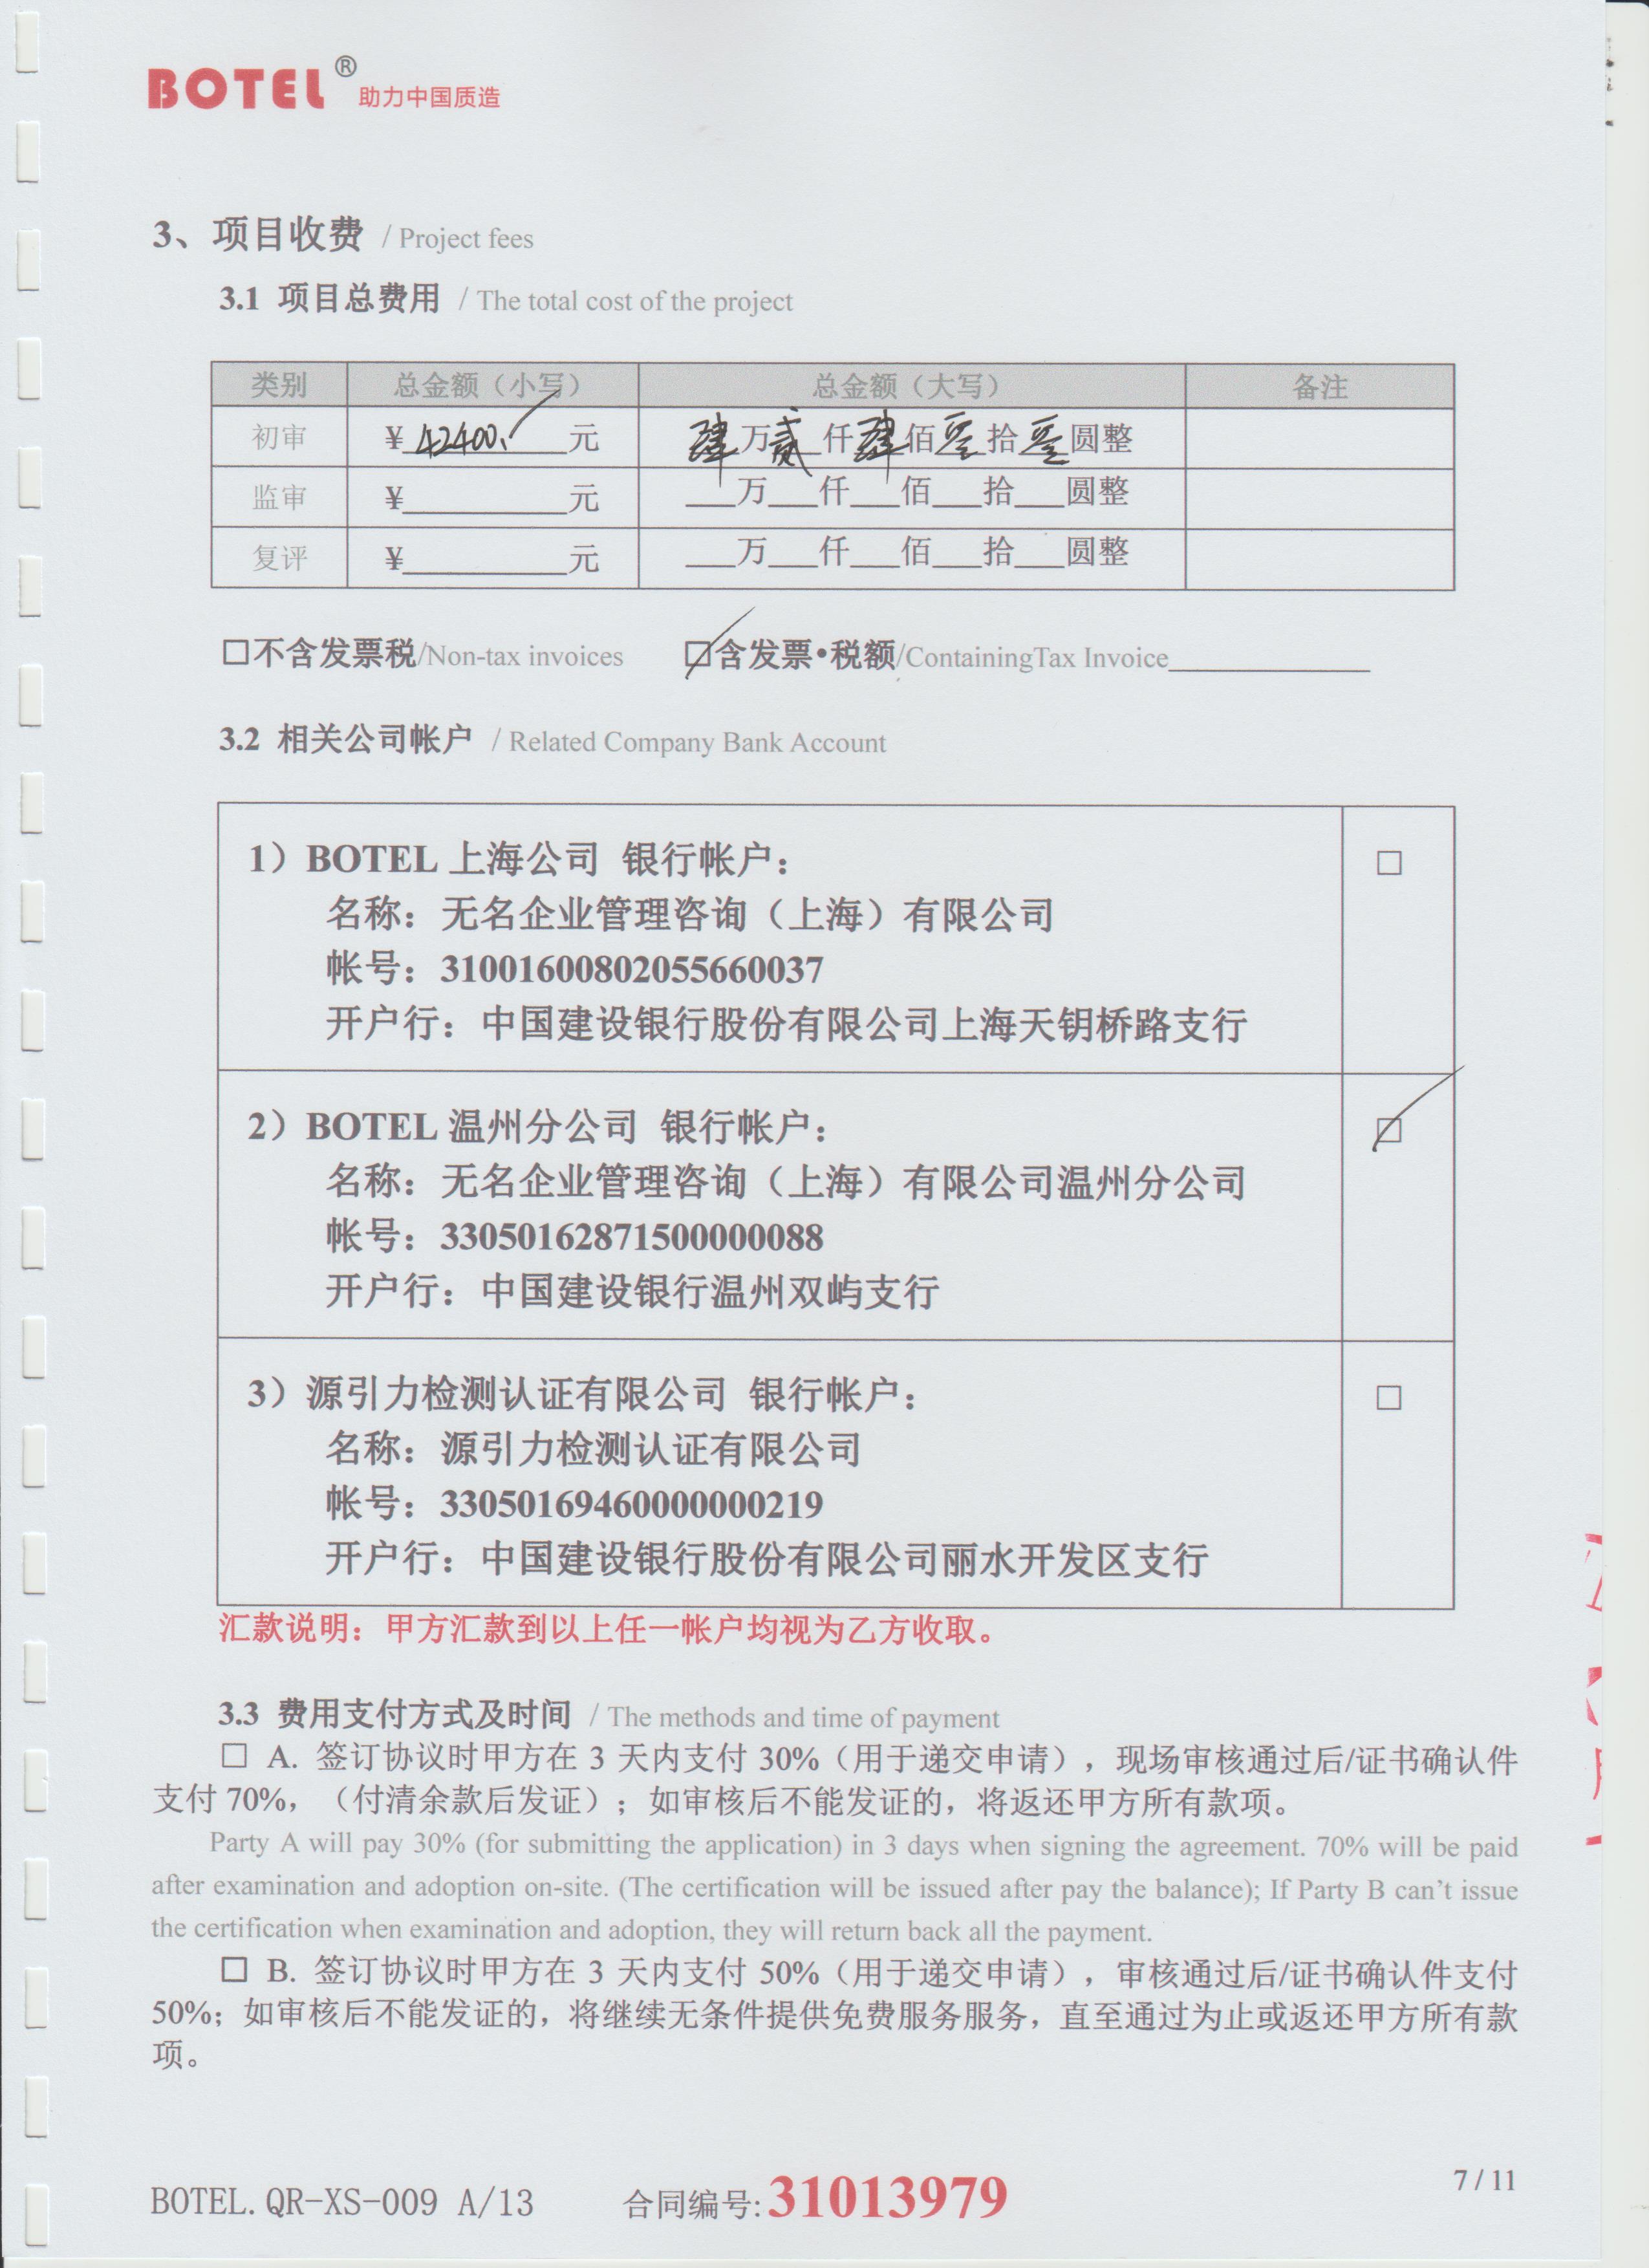 BOTEL® 助力中国质造
3、项目收费 / Project fees
3.1 项目总费用 / The total cost of the project
类别 总金额（小写） 总金额（大写） 备注
初审 ¥42400.元 肆万贰仟肆佰零拾零圆整
监审 ¥__________元 ___万___仟___佰___拾___圆整
复评 ¥__________元 ___万___仟___佰___拾___圆整
☐不含发票税/Non-tax invoices ☑含发票•税额/ContainingTax Invoice____________
3.2 相关公司帐户 / Related Company Bank Account
1）BOTEL 上海公司 银行帐户： ☐
名称：无名企业管理咨询（上海）有限公司
帐号：31001600802055660037
开户行：中国建设银行股份有限公司上海天钥桥路支行
2）BOTEL 温州分公司 银行帐户： ☑
名称：无名企业管理咨询（上海）有限公司温州分公司
帐号：33050162871500000088
开户行：中国建设银行温州双屿支行
3）源引力检测认证有限公司 银行帐户： ☐
名称：源引力检测认证有限公司
帐号：33050169460000000219
开户行：中国建设银行股份有限公司丽水开发区支行
汇款说明：甲方汇款到以上任一帐户均视为乙方收取。
3.3 费用支付方式及时间 / The methods and time of payment
☐ A. 签订协议时甲方在 3 天内支付 30%（用于递交申请），现场审核通过后/证书确认件
支付 70%，（付清余款后发证）；如审核后不能发证的，将返还甲方所有款项。
Party A will pay 30% (for submitting the application) in 3 days when signing the agreement. 70% will be paid
after examination and adoption on-site. (The certification will be issued after pay the balance); If Party B can’t issue
the certification when examination and adoption, they will return back all the payment.
☐ B. 签订协议时甲方在 3 天内支付 50%（用于递交申请），审核通过后/证书确认件支付
50%；如审核后不能发证的，将继续无条件提供免费服务服务，直至通过为止或返还甲方所有款
项。
BOTEL.QR-XS-009 A/13 合同编号:31013979 7 / 11